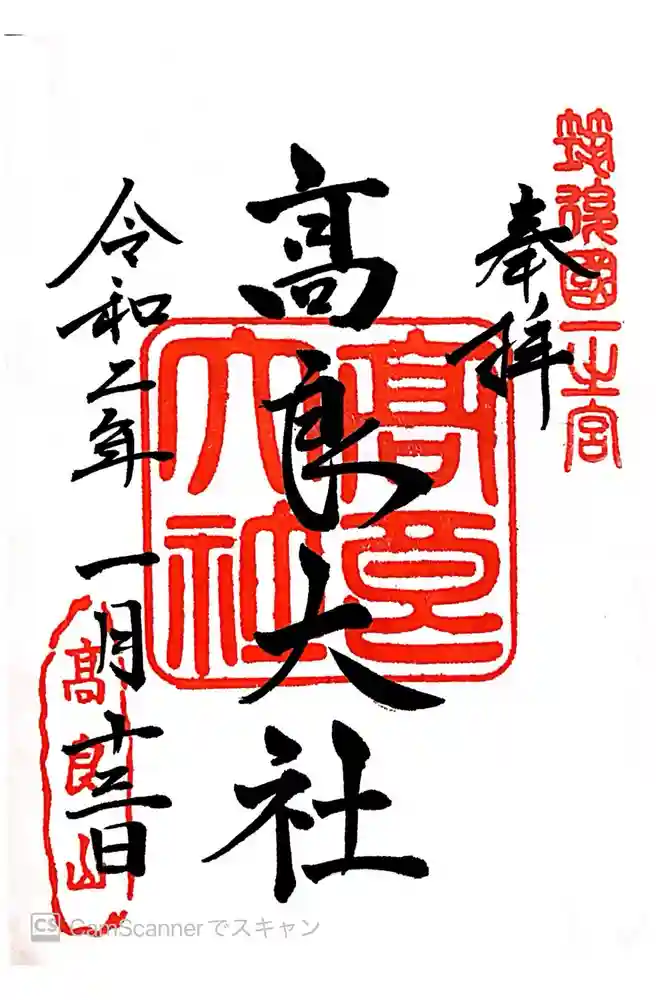 筑後國一之宮
奉拝
高良大社
高良大社
令和二年 一月十三日
高良山
CS CamScannerでスキャン